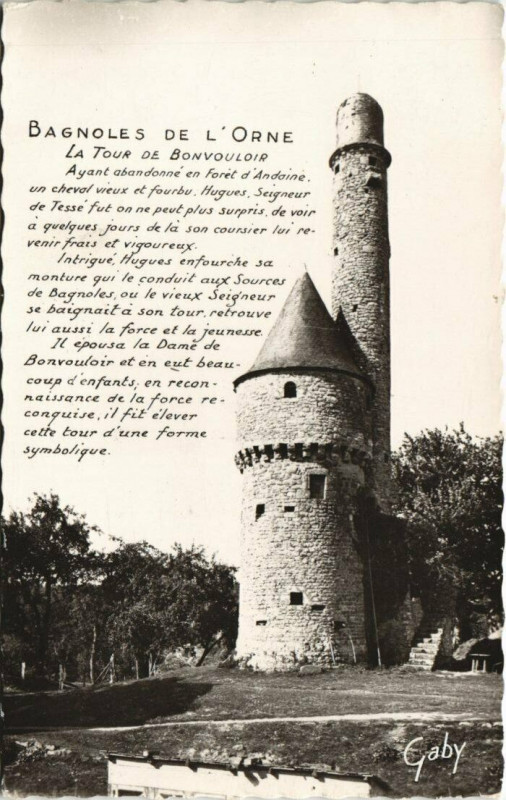 BAGNOLES DE L'ORNE
LA TOUR DE BONVOULOIR
Ayant abandonné en Forêt d'Andaine,
un cheval vieux et fourbu. Hugues, Seigneur
de Tessé fut on ne peut plus surpris, de voir
à quelques jours de là son coursier lui re-
venir frais et vigoureux.
Intrigué, Hugues enfourche sa
monture qui le conduit aux Sources
de Bagnoles, ou le vieux Seigneur
se baignait à son tour, retrouve
lui aussi la force et la jeunesse.
Il épousa la Dame de
Bonvouloir et en eut beau-
coup d'enfants; en recon-
naissance de la force re-
conquise, il fit élever
cette tour d'une forme
symbolique.
Gaby